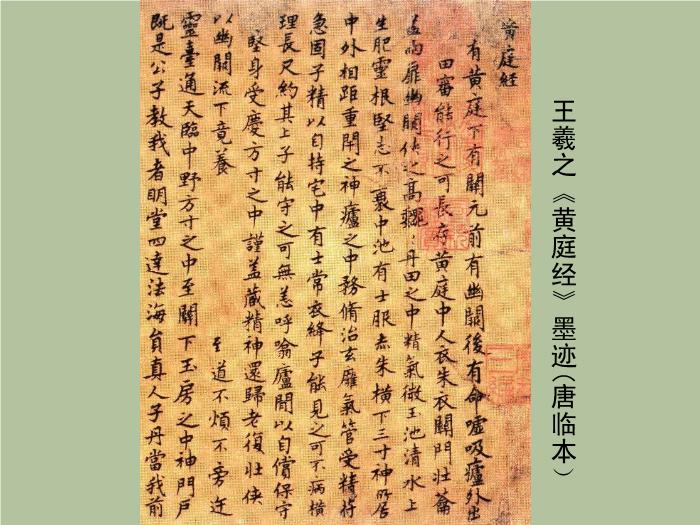 王羲之《黄庭经》墨迹(唐临本)
黄庭经
有黄庭下有關元前有幽闕後有命嘘吸廬外出
田審能行之可長存黄庭中人衣朱衣關門壯蘥
盖兩扉幽關俠之高巍丹田之中精氣微玉池清水上
生肥靈根堅志不衰中池有士服赤朱横下三寸神所居
中外相距重閉之神廬之中務脩治玄廱氣管受精符
急固子精以自持宅中有士常衣絳子能見之可不病横
理長尺約其上子能守之可無恙呼噏廬間以自償保守
堅身受慶方寸之中謹盖藏精神還歸老復壯俠
以幽闕流下竟養 至道不煩不旁迕
靈臺通天臨中野方寸之中至關下玉房之中神門戶
既是公子教我者明堂四達法海員真人子丹當我前